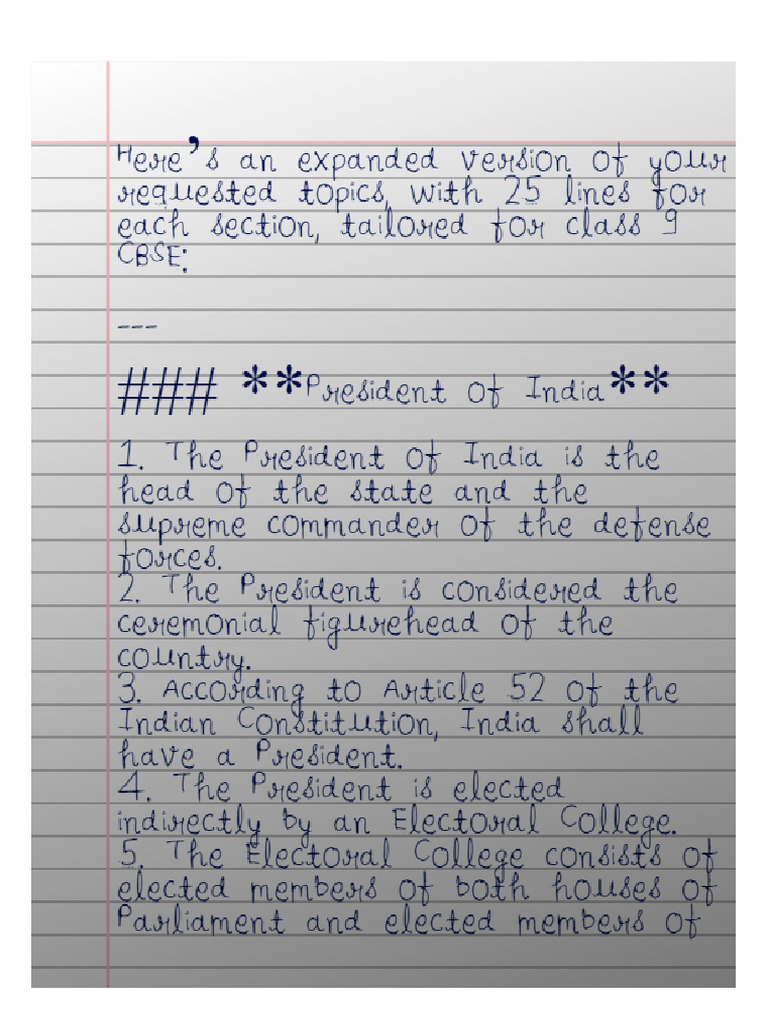 Here's an expanded version of your
requested topics, with 25 lines for
each section, tailored for class 9
CBSE:
---
### **President of India**
1. The President of India is the
head of the state and the
supreme commander of the defense
forces.
2. The President is considered the
ceremonial figurehead of the
country.
3. According to Article 52 of the
Indian Constitution, India shall
have a President.
4. The President is elected
indirectly by an Electoral College.
5. The Electoral College consists of
elected members of both houses of
Parliament and elected members of